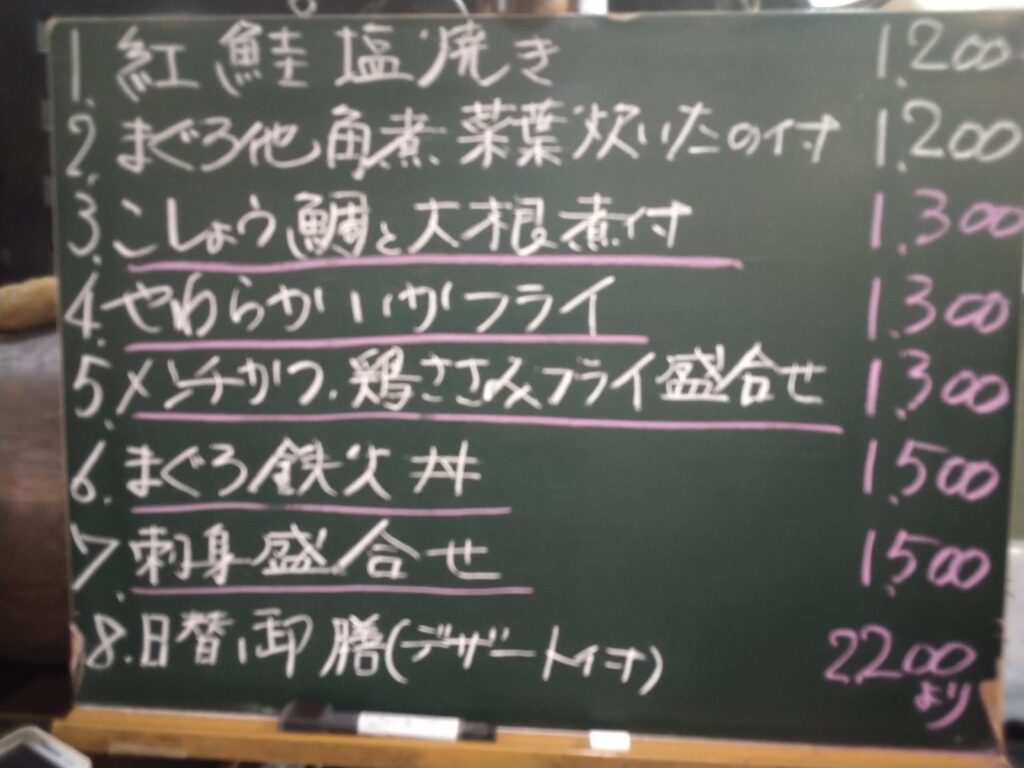 1. 紅鮭塩焼き 1,200
2. まぐろ他角煮 菜葉炊いたの付 1,200
3. こしょう鯛と大根煮付 1,300
4. やわらかいかフライ 1,300
5. メンチかつ.鶏ささみフライ盛合せ 1,300
6. まぐろ鉄火丼 1,500
7. 刺身盛合せ 1,500
8. 日替御膳(デザート付) 2,200
より